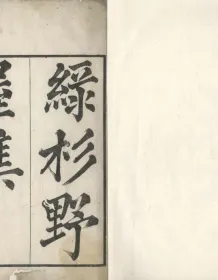 綠杉野
屋集